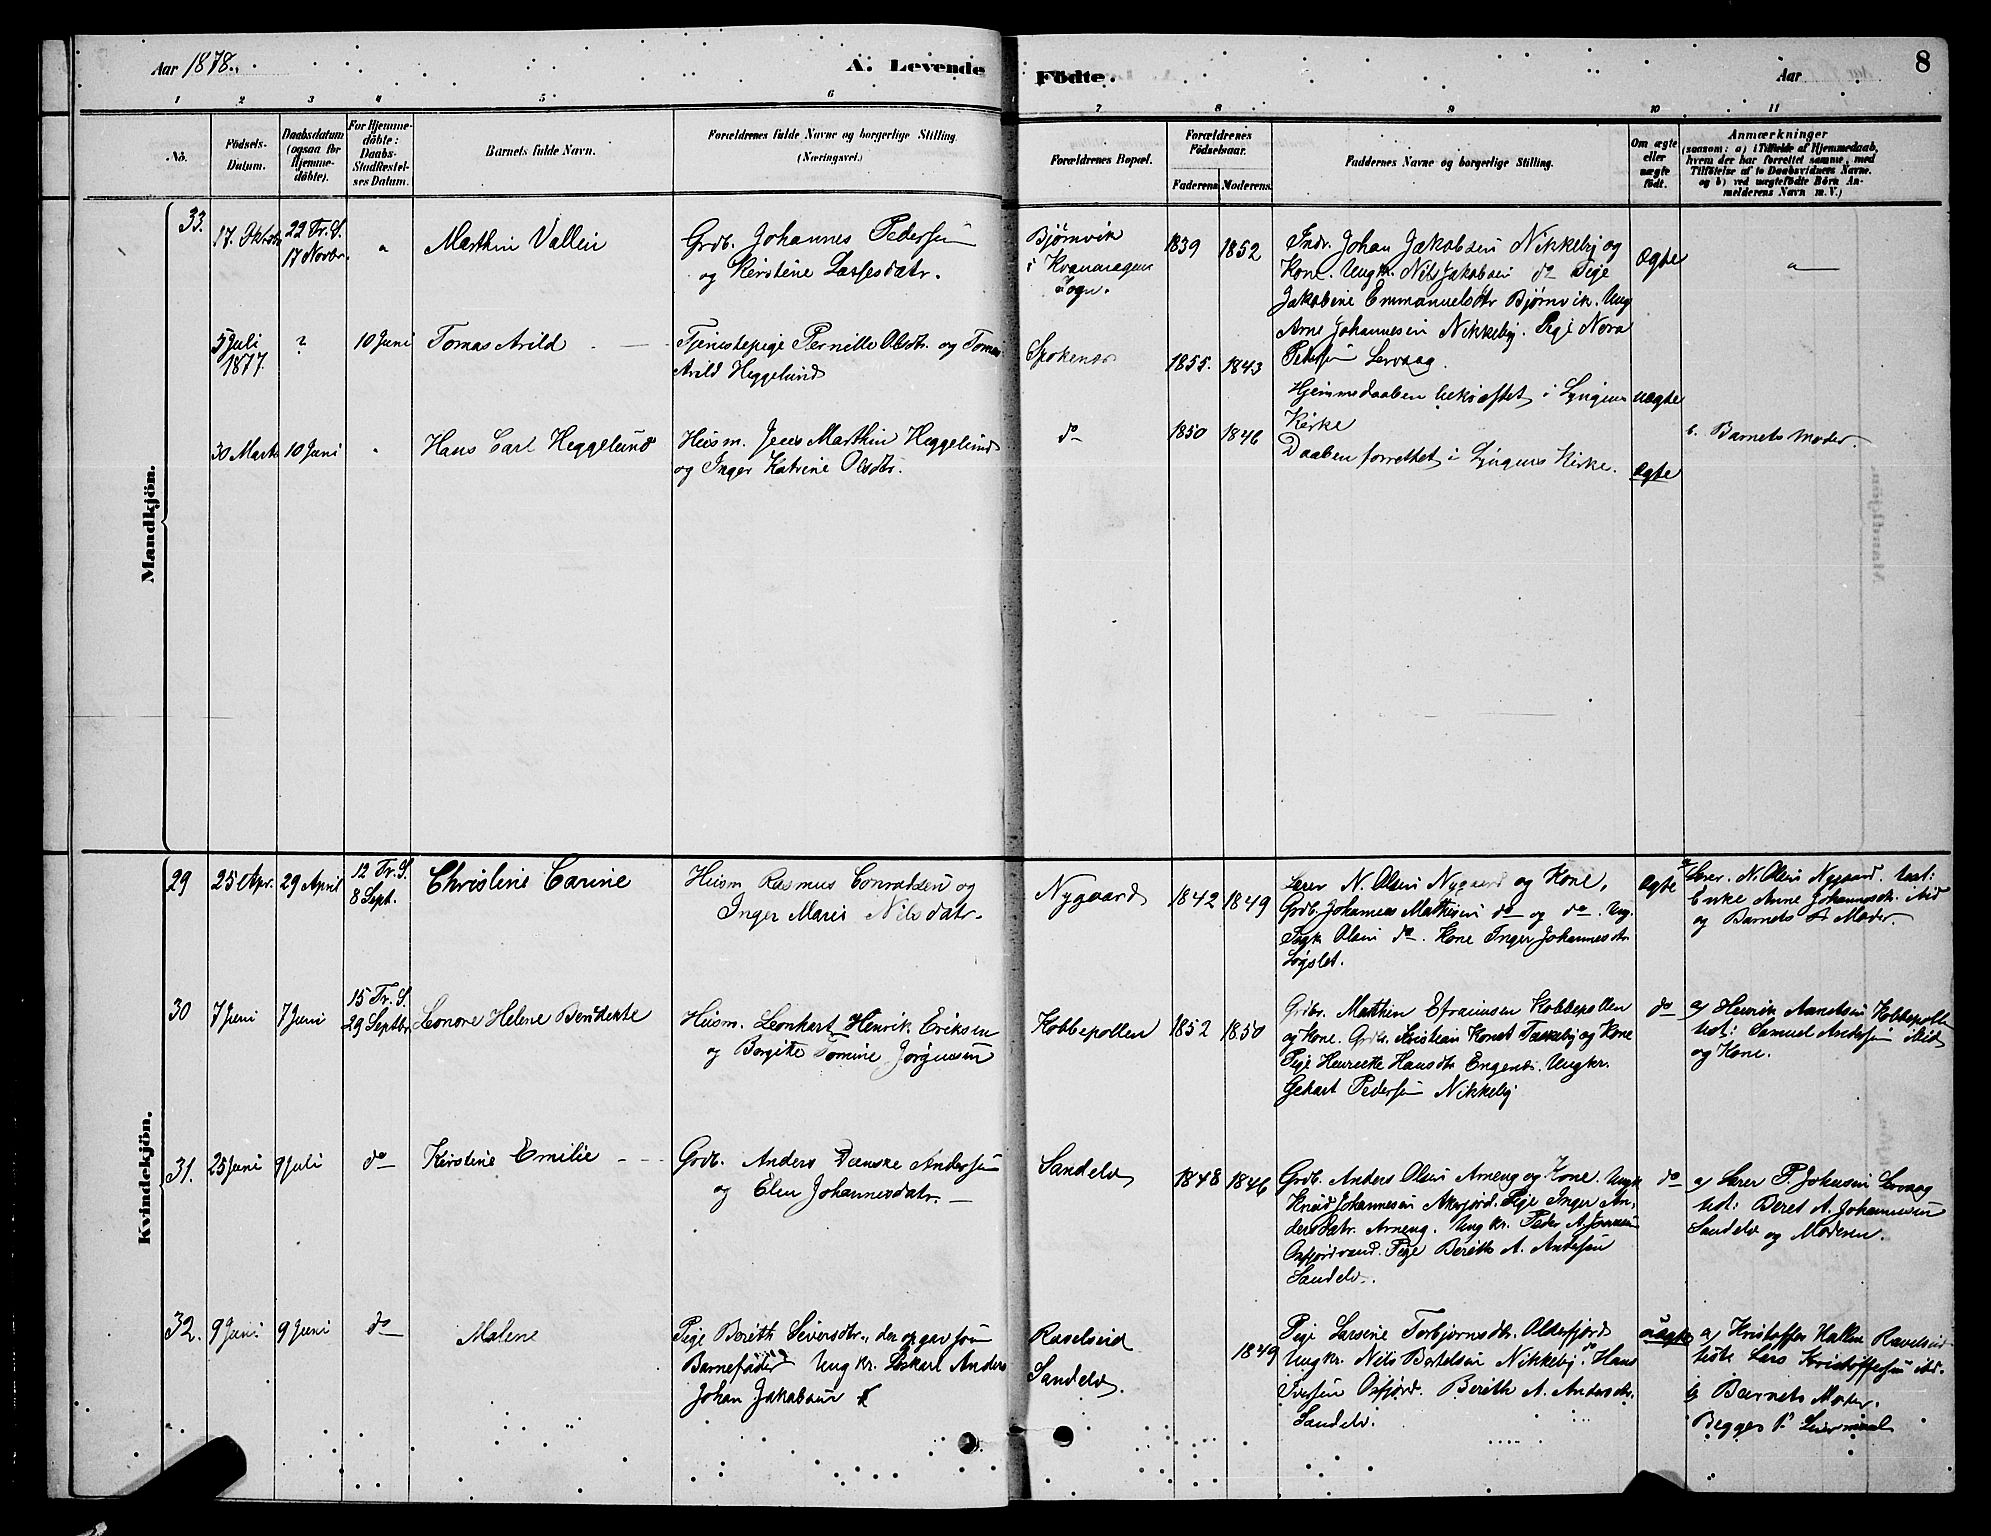 Aar 1878.
A. Levende
Födte.
Aar
8
1 2 3 4 5 6 7 8 9 10 11
No.
Födsels-
Datum.
Daabsdatum
(ogsaa for
Hjemme-
döbte).
For Hjemme-
döbte:
Daabs-
Stadfæstel-
ses Datum.
Barnets fulde Navn.
Forældrenes fulde Navne og borgerlige Stilling
(Næringsvei.)
Forældrenes Bopæl.
Forældrenes
Födselsaar.
Faderens. Moderens.
Faddernes Navne og borgerlige Stilling.
Om ægte
eller
uægte
födt.
Anmærkninger
(saasom: a) i Tilfælde af Hjemmedaab,
hvem der har forrettet samme, med
Tilföielse af to Daabsvidners Navne.
og b) ved uægtefödte Börn An-
melderens Navn m. V.)
Mandkjön.
33.
17. Oktob
22 Tr. S.
17 Novbr.
"
Marthin Vallin
Grdb. Johannes Pedersen
og Kerstine Larsesdatr.
Bjørnvik
i Kvænangens
Sogn.
1839
1852
Indr. Johan Jakobsen Nikkeby og
Kone. Ungk. Nils Jakobsen do Pige
Jakobine Emmanuelsdtr Bjørnvik. Ung
Arne Johannesen Nikkeby. Pige Nora
Petersen Lervaag.
Ægte
5 Juli
1877.
?
10 Juni
Tomas Arild
Tjenestepige Pernille Olsdtr. og Tomas
Arild Heggelund
Spokenes
1855.
1843
Hjemmedaaben bekræftet i Lyngens
Kirke
uægte
b. Barnets Moder.
30 Marts
10 Juni
"
Hans Carl Heggelund
Husm. Jens Marthin Heggelund
og Inger Katrine Olsdtr.
do
1850
1846
Daaben forrettet i Lyngens Kirke.
ægte
Kvindekjön.
29
25 Apr.
29 April
12 Tr. S.
8 Sept.
Christine Carine
Husm Rasmus Conradsen og
Inger Marie Nilsdatr.
Nygaard
1842
1849
Lærer N. Olsen Nygaard og Kone,
Grdb. Johannes Mathisen do og do. Ug.
Olsen do. Kone Inger Johannesdtr.
Ægte
a Lærer. N. Olsen Nygaard. test:
Enke Anne Johannesdtr. ibid
og Barnets Moder.
30
7 Juni
7 Juni
15 Tr. S.
29 Septbr.
Leonore Helene Bendekte
Husm. Leonhart Henrik Eriksen
og Borgitte Tomine Jørgensen
Kobbepollen
1852
1850
Grdbr. Mathin Efraimsen Kobbepollen
og Kone. Grdb. Kristian Konst og Kone
Pige Henrette Hansdtr Engenes. Ungkr.
Gehart Pedersen Nikkeby
do
a) Henrik Kobbepollen
test: Samuel Andersen ibid
og Kone.
31.
25 Juni
9 Juli
do
Kirstine Emilie
Grdb. Anders Danske Andersen
og Elen Johannesdatr.
Sandelv
1848
1846
Grdb. Anders Olsen Arneng og Kone. Ungk
Knud Johannesen Akerfjord. Pige Inger An-
dersdatr. Arneng. Ung kr. Peder A
Oxfjordvand. Pige Berith A. Andersen
Sandelv.
do
a) Lærer P. Johnsen Lervaag
test: Beret A. Johannesen
Sandelv og Moderen.
32.
9 Juni
9 Juni
do
Malene
Pige Berith Siversdtr., der opgav som
Barnefader Ung kr. Anders
Johan Jakobsen
Ravelseid
Sandelv.
1849
Pige Larsine Torbjørnsdtr. Olderfjord
Ungkr. Nils Bertelsen Nikkeby. do Hans
Iversen Oxfjord. Berith A. Andersdtr.
Sandelv.
uægte
a) Kristoffer Hallen Ravelseid
teste Lars Kristoffersen ibd.
b) Barnets Moder.
Begges